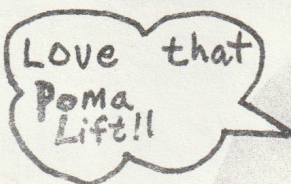 Love that
Poma
Lift!!